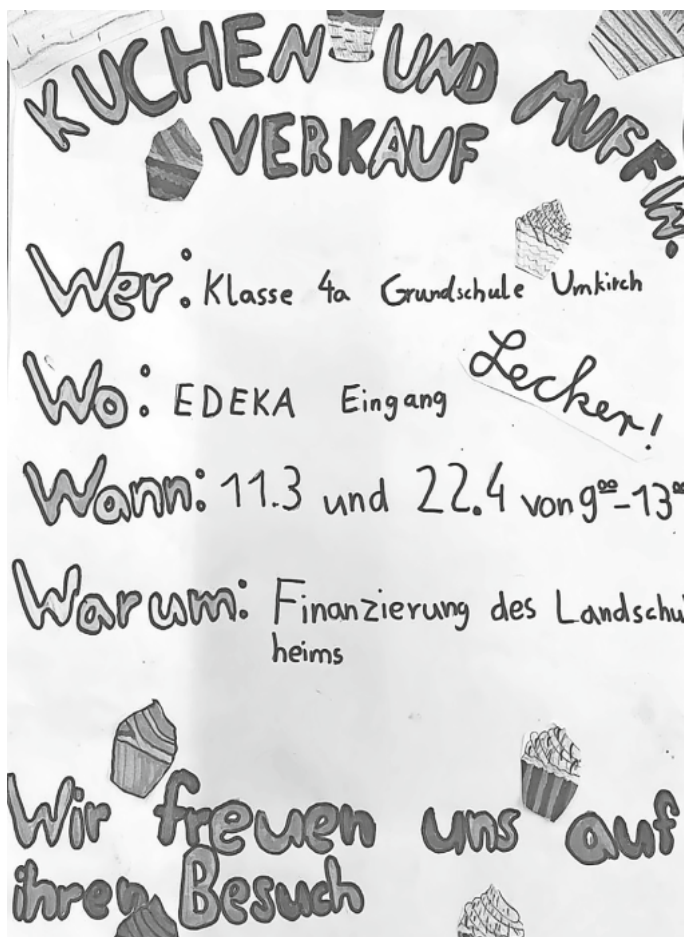 KUCHEN UND MUFFIN.
VERKAUF
Wer: Klasse 4a Grundschule Umkirch
Wo: EDEKA Eingang
Lecker!
Wann: 11.3 und 22.4 von 9⁰⁰-13⁰⁰
Warum: Finanzierung des Landschul
heims
Wir freuen uns auf
ihren Besuch